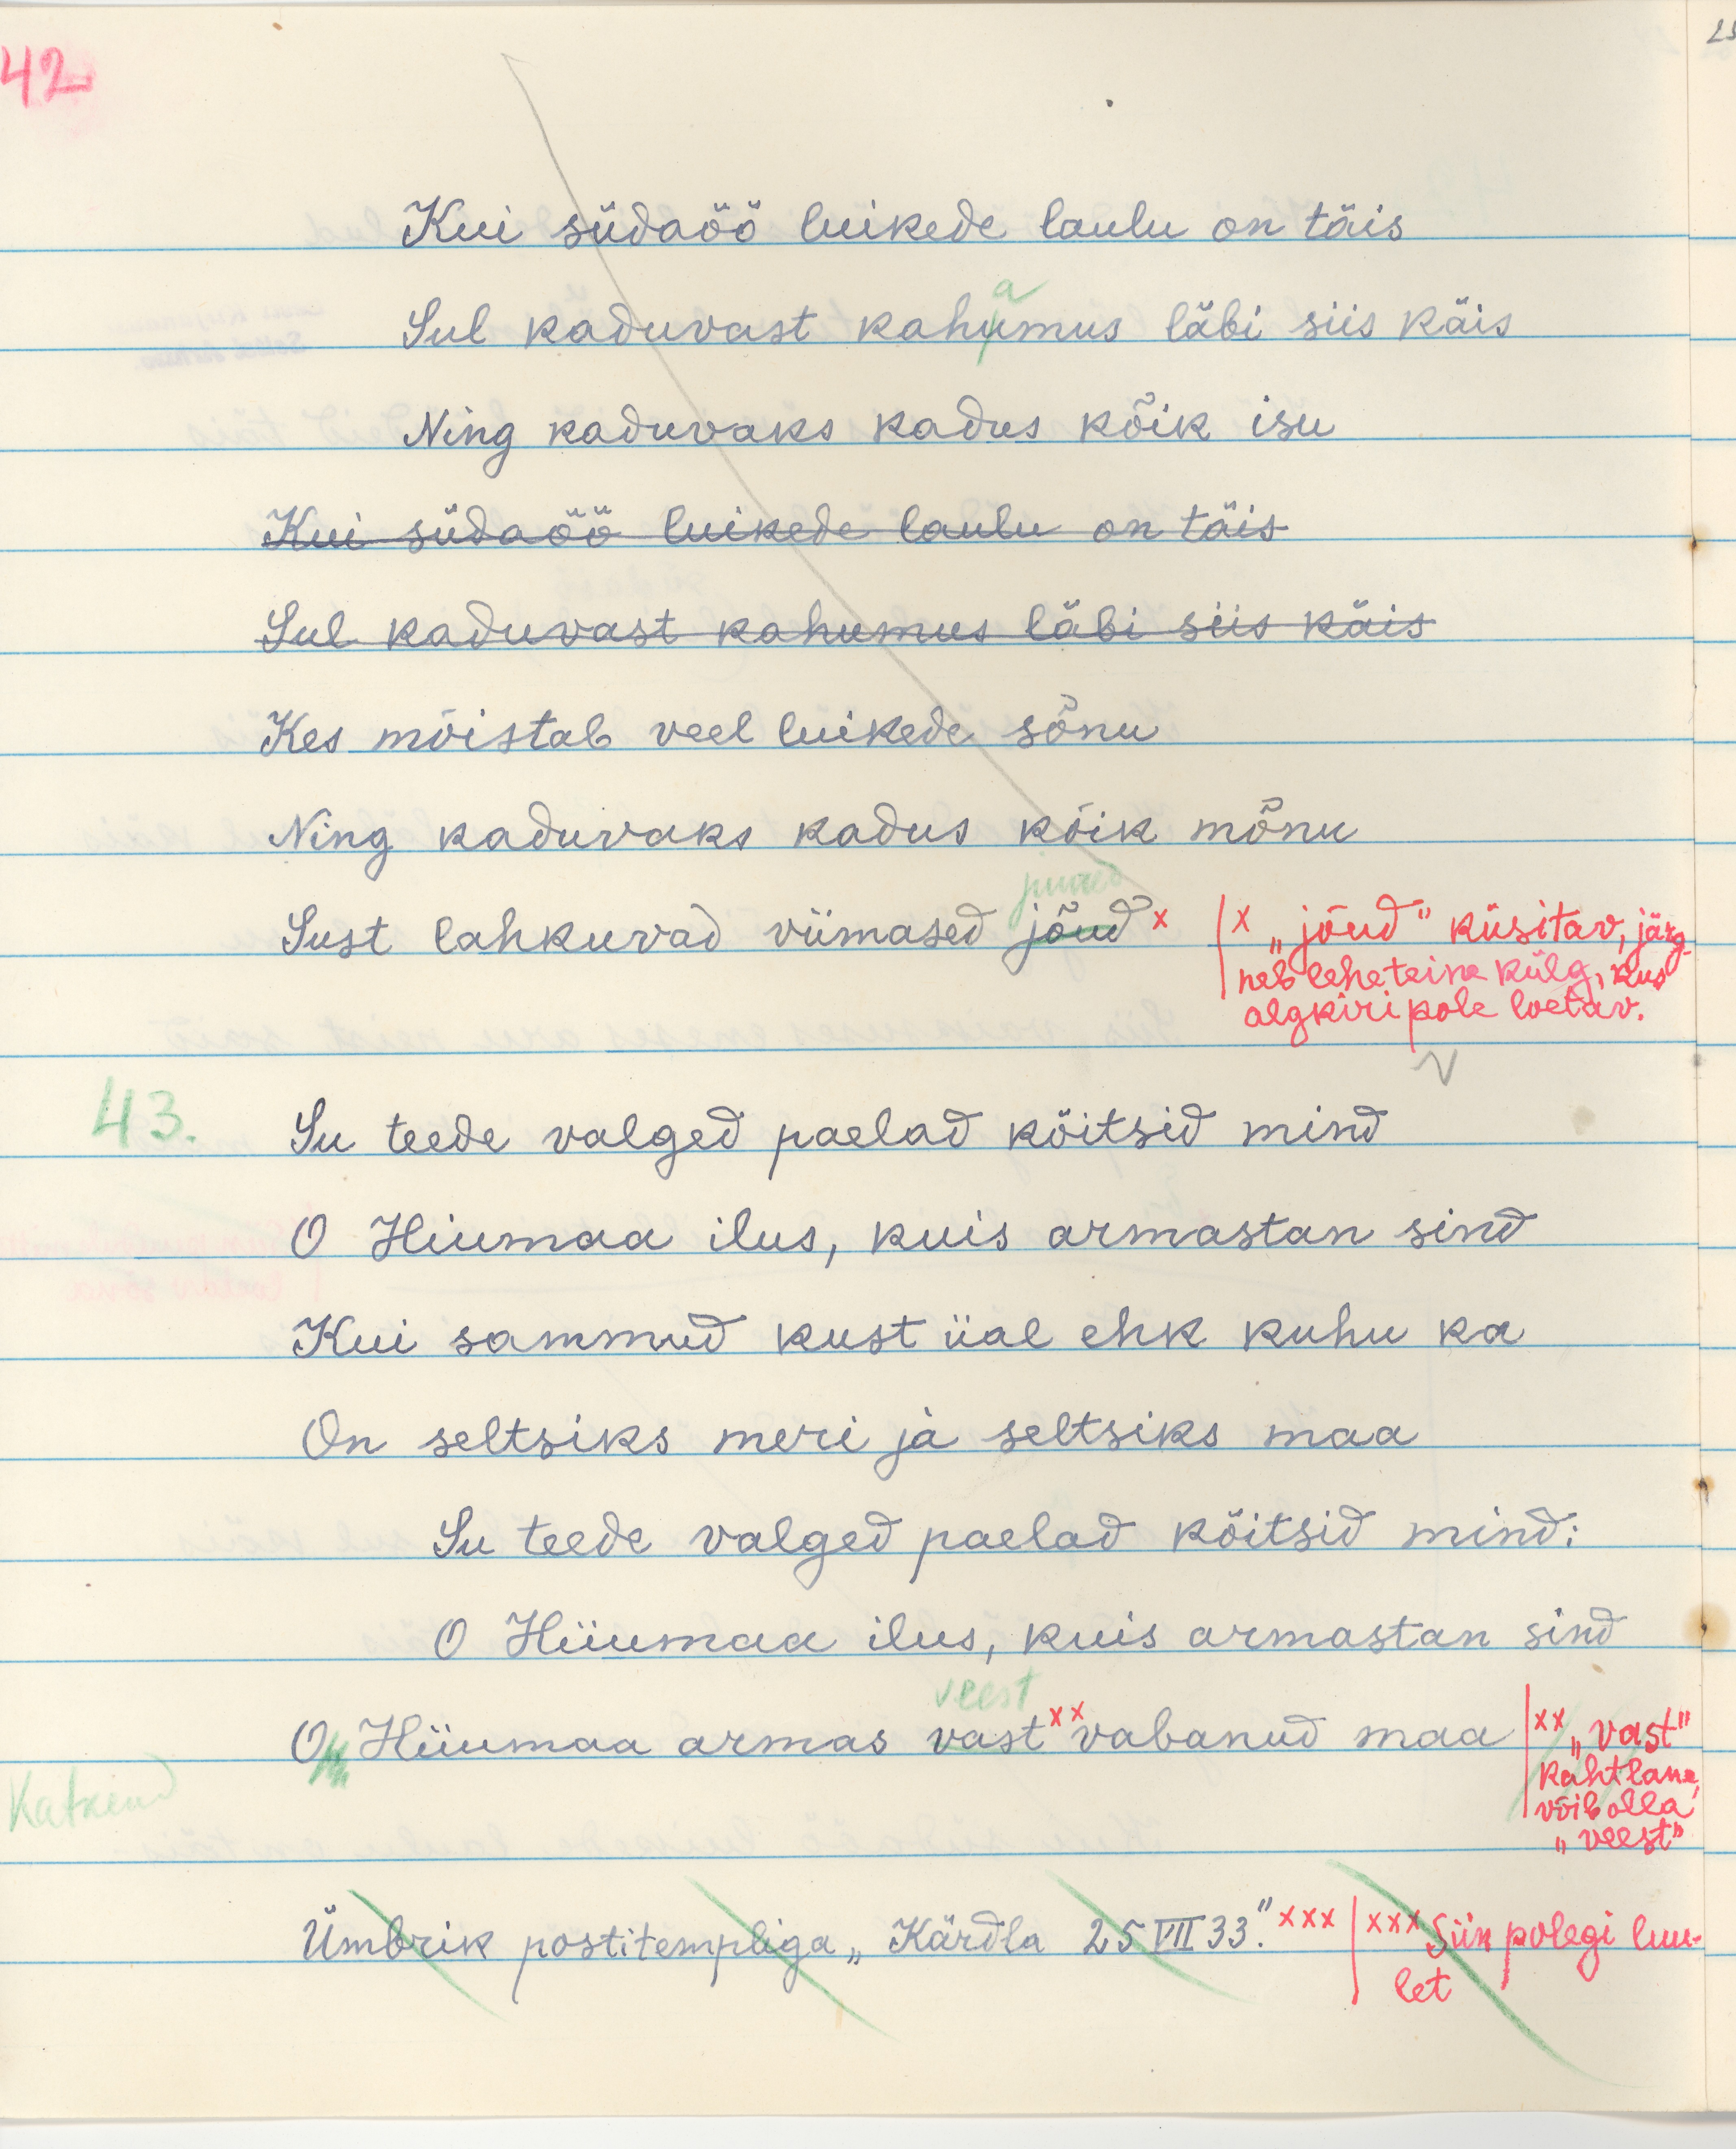 42
Kui südaöö luikede laulu on täis
a
Sul kaduvast kahumus läbi siis käis
Ning kaduvaks kadus kõik isu
Kui südaöö luikede laulu on täis
Sul kaduvast kahumus läbi siis käis
Kes mõistab veel luikede sõnu
Ning kaduvaks kadus kõik mõnu
Sust lahkuvad viimased jõud x
x „jõud" küsitav, järg-
neb lehe teine külg, kus
algkiri pole loetav.
43. Su teede valged paelad köitsid mind
O Hiiumaa ilus, kuis armastan sind
Kui sammud kust iial ehk kuhu ka
On seltsiks meri ja seltsiks maa
Su teede valged paelad köitsid mind:
O Hiiumaa ilus, kuis armastan sind
veest
O, Hiiumaa armas vast xx vabanud maa
xx „vast"
kahtlane,
võib olla
„veest"
Katkend
Ümbrik postitempliga „Kärdla 25 VII 33." xxx
xxx Siin polegi luu-
let